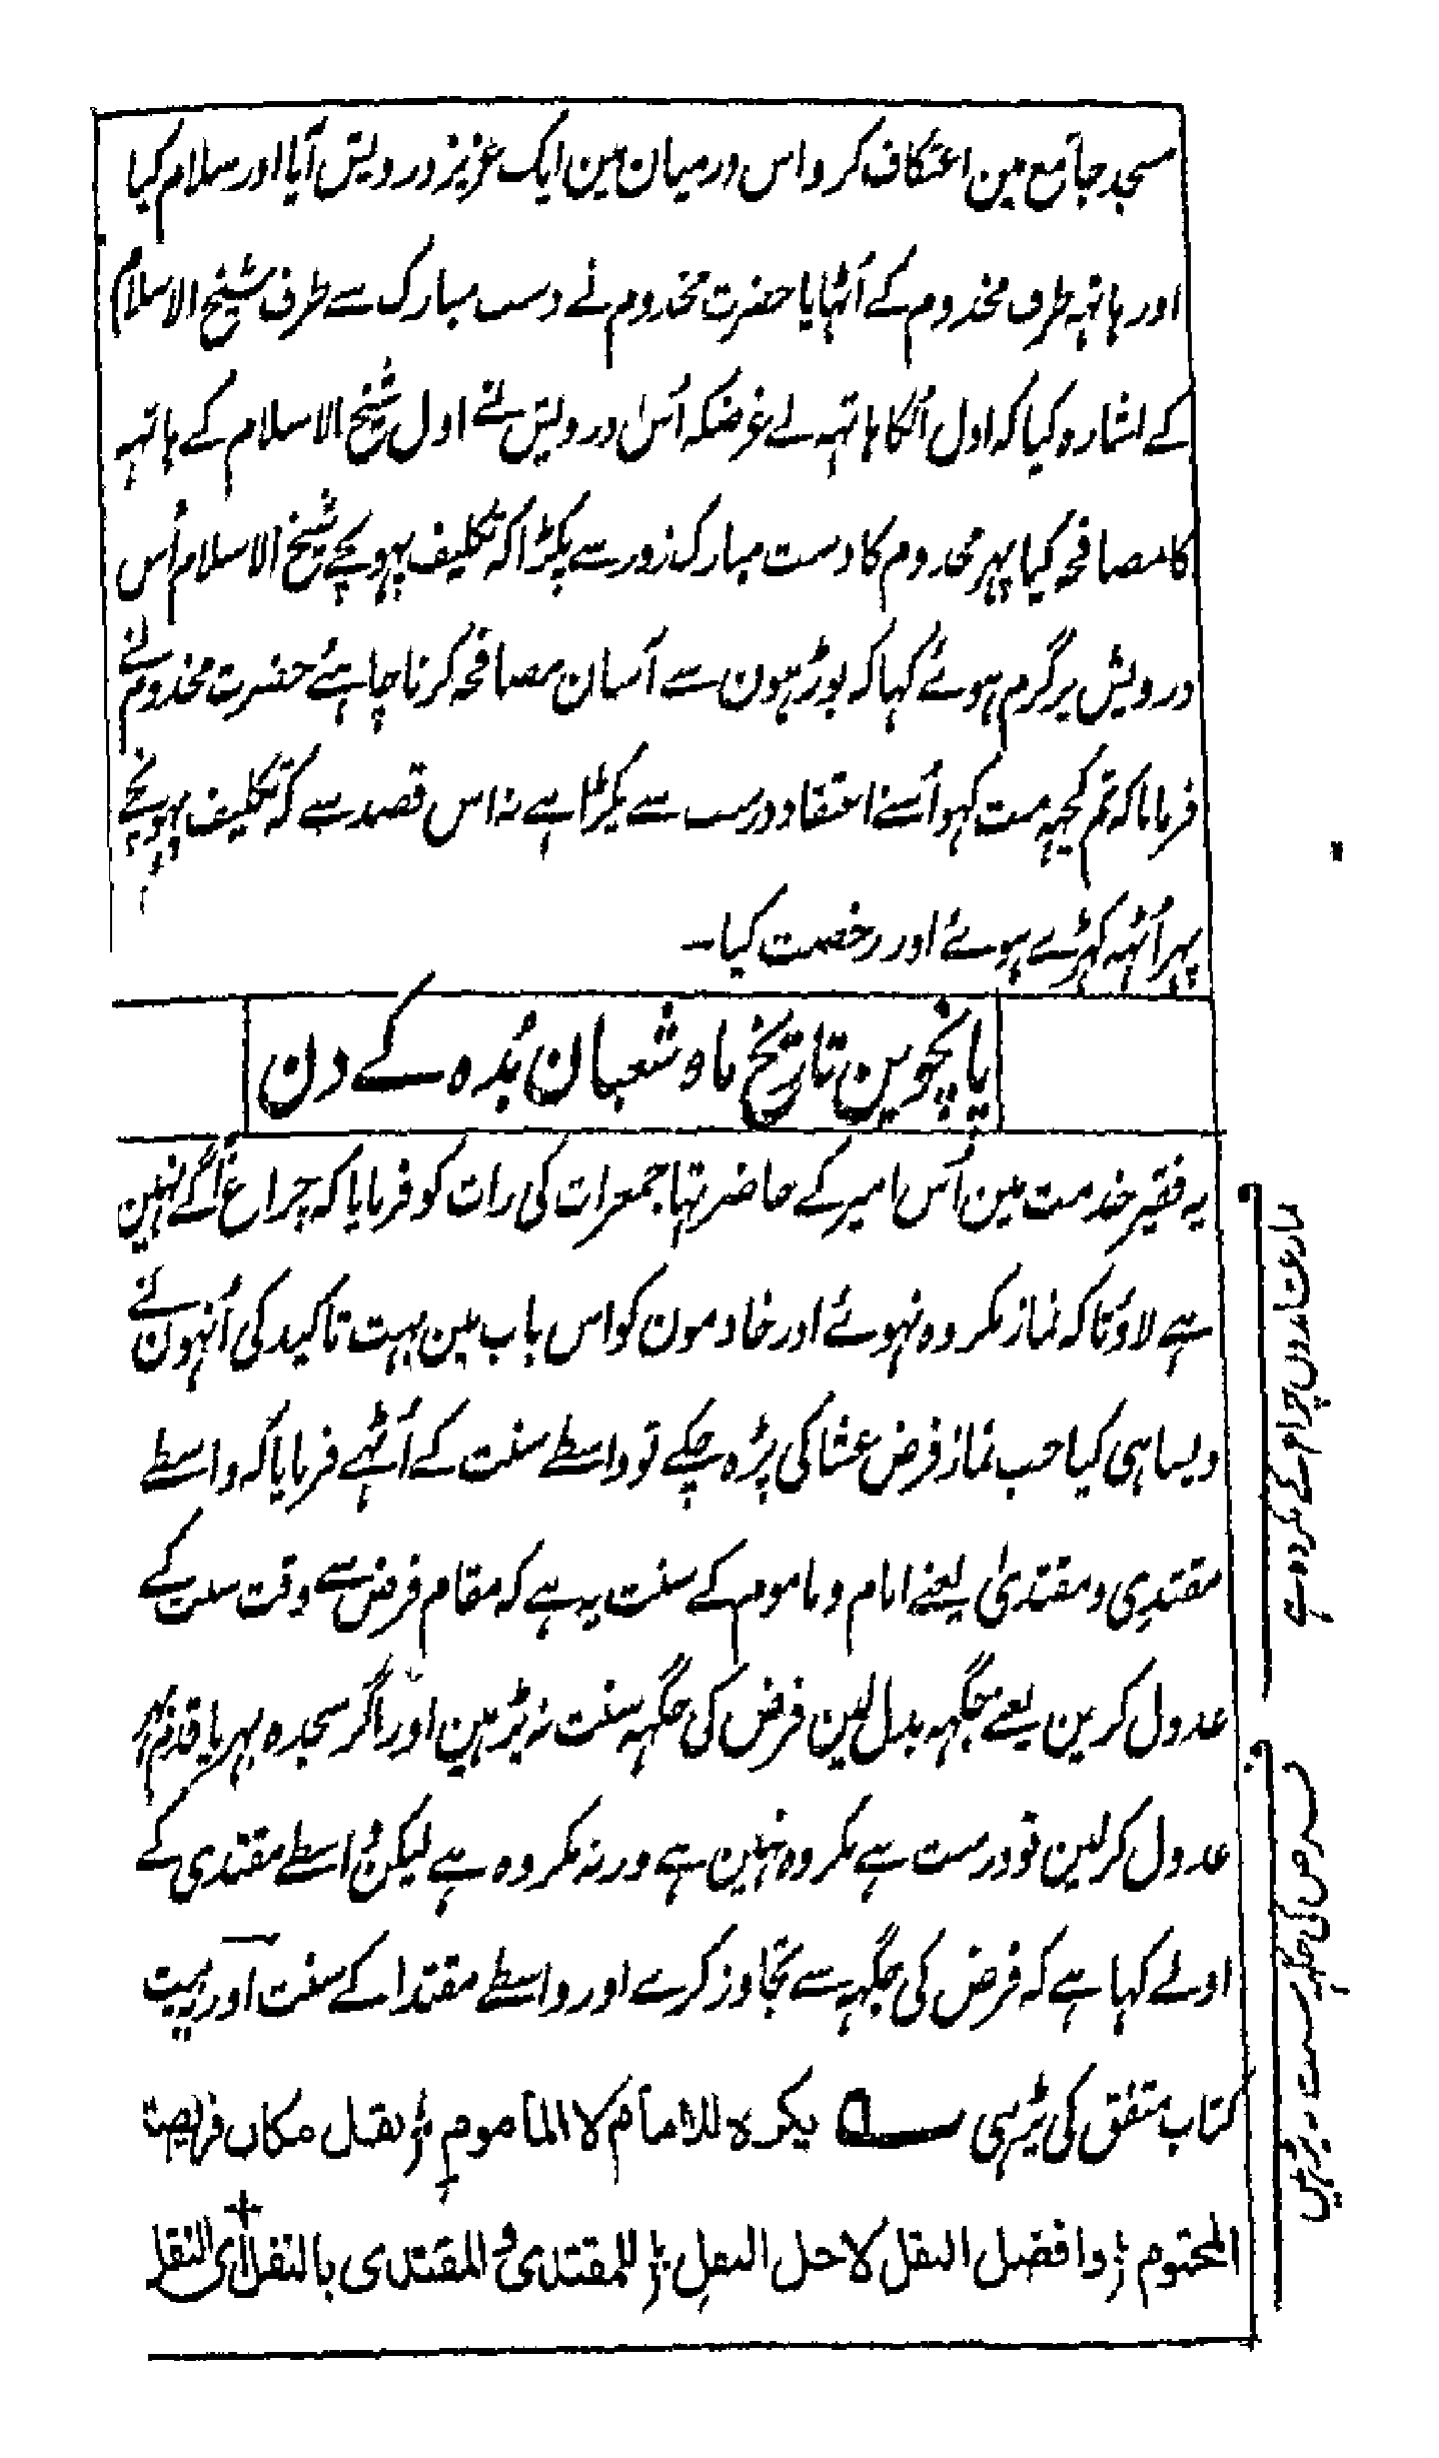 مسجد جامع مین اعتکاف کرو اس درمیان مین ایک عزیز درویش آیا اور سلام کیا
اور ہاتہہ طرف مخدوم کے اُٹہایا حضرت مخدوم نے دست مبارک سے طرف شیخ الاسلام
کے اشارہ کیا کہ اول انکا ہاتہہ لے غرضکہ اُس درویش نے اول شیخ الاسلام کے ہاتہہ
کا مصافحہ کیا پہر مخدوم کا دست مبارک زور سے پکڑا کہ تکلیف پہونچے شیخ الاسلام اُس
درویش پر گرم ہوئے کہا کہ بوڑہون سے آسان مصافحہ کرنا چاہئے حضرت مخدوم نے
فرمایا کہ تم کچہہ مت کہو اُسنے اعتقاد درست سے پکڑا ہے نہ اس قصد سے کہ تکلیف پہونچے
پہر اُٹہہ کہڑے ہوئے اور رخصت کیا۔
پانچوین تاریخ ماہ شعبان بُدہ کے دن
یہ فقیر خدمت مین اُس امیر کے حاضر تہا جمعرات کی رات کو فرمایا کہ چراغ آگے نہین
ہے لاؤ تاکہ نماز مکروہ نہوئے اور خادمون کو اس باب مین بہت تاکید کی اُنہون نے
ویسا ہی کیا جب نماز فرض عشا کی پڑہ چکے تو واسطے سنت کے اُٹہے فرمایا کہ واسطے
مقتدِی و مقتدیٰ یعنے امام و ماموم کے سنت یہ ہے کہ مقام فرض سے وقت سنت کے
عدول کرین یعنے جگہہ بدل لین فرض کی جگہہ سنت نہ پڑہین اور اگر سجدہ بہر یا قدم بہر
عدول کرلین تو درست ہے مکروہ نہین ہے ورنہ مکروہ ہے لیکن واسطے مقتدی کے
اولے کہا ہے کہ فرض کی جگہہ سے تجاوز کرے اور واسطے مقتدا کے سنت اور یہ بیت
کتاب متفق کی پڑہی یکرہ للامام لا المأموم نقل مکان فریضہ
المحتوم وافضل النقل لاجل النفل للمقتدی و المقتدی بالنفل ای النقل
فرض کی جگہہ سنت نہ پڑہین